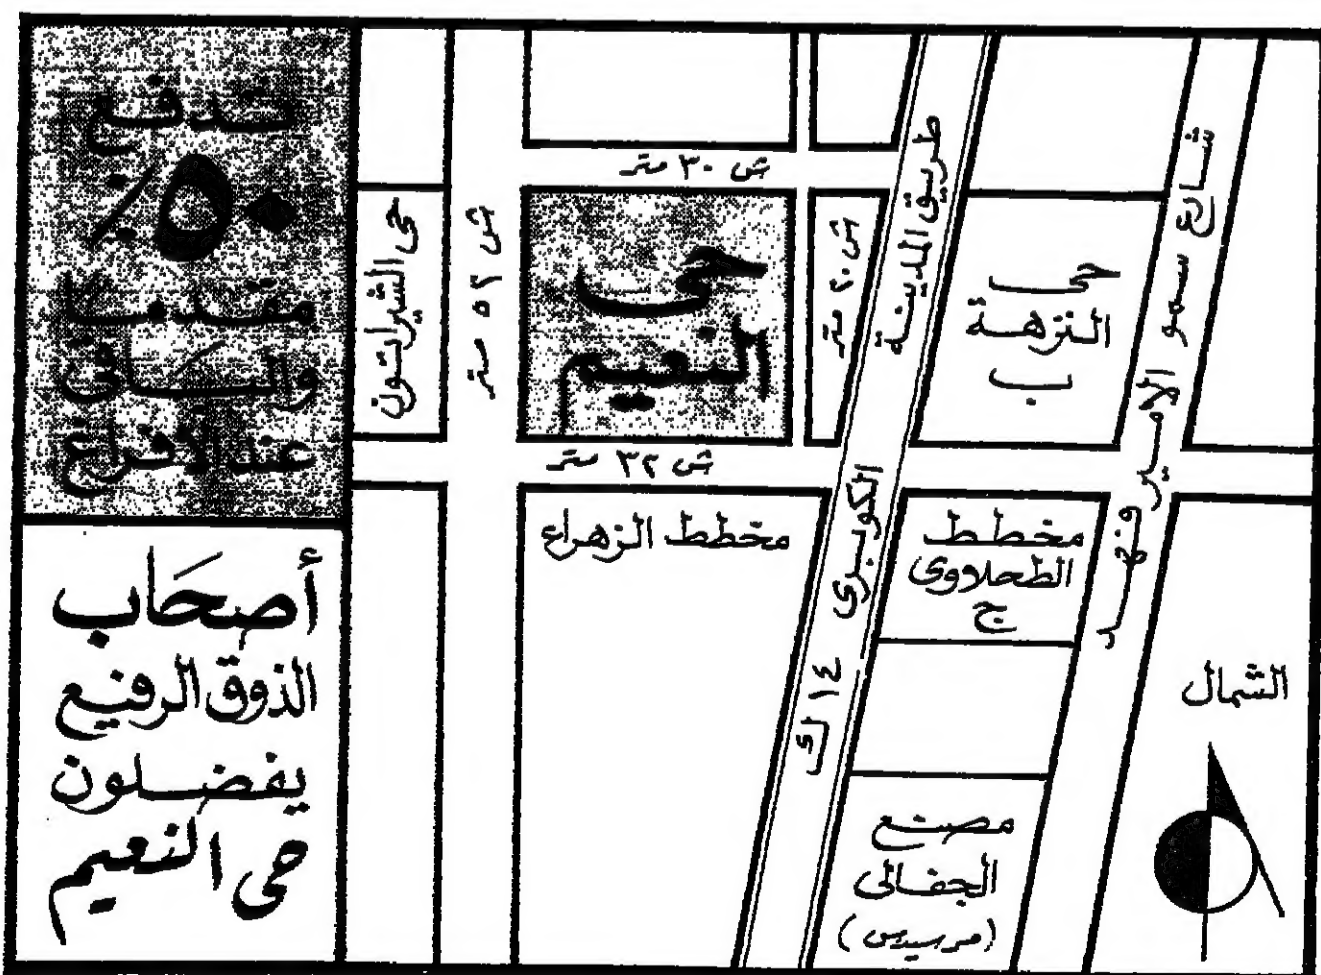 تدفع
٥٠٪
مقدما
والباقى
عند الافراغ
أصحاب
الذوق الرفيع
يفضلون
حى النعيم
حى الشيراتون
ش ٥٢ متر
ش ٣٠ متر
حى
النعيم
ش ٢٠ متر
ش ٣٢ متر
مخطط الزهراء
طريق المدينة
الكوبرى ١٤ ك
حى
النزهة
ب
مخطط
الطحلاوى
ج
مصنع
الجفالى
(مرسيدس)
شارع سمو الامير فهد
الشمال